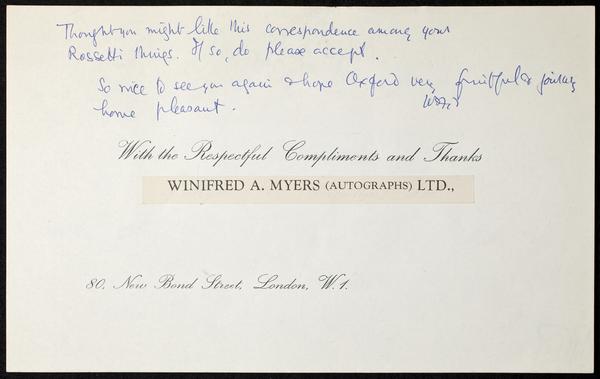 Thought you might like this correspondence among your
Rossetti things. If so, do please accept.
So nice to see you again & hope Oxford very fruitful & journey
home pleasant.
With the Respectful Compliments and Thanks
WINIFRED A. MYERS (AUTOGRAPHS) LTD.,
80, New Bond Street, London, W.1.